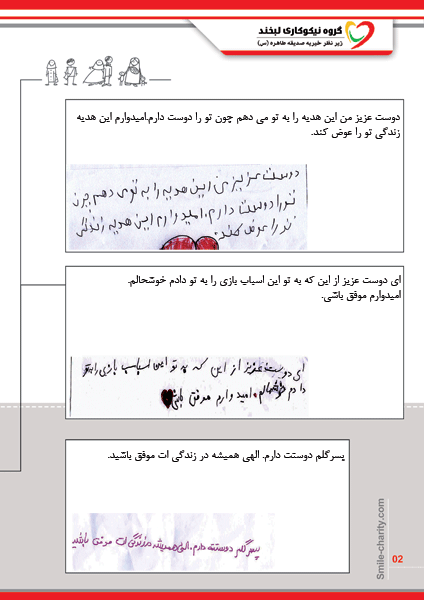 گروه نیکوکاری لبخند
زیر نظر خیریه صدیقه طاهره (س)
دوست عزیز من این هدیه را به تو می دهم چون تو را دوست دارم.امیدوارم این هدیه
زندگی تو را عوض کند.
دوست عزیز من این هدیه را به تو می دهم چون
تو را دوست دارم. امیدوارم این هدیه زندگی
تو را عوض کند.
ای دوست عزیز از این که به تو این اسباب بازی را به تو دادم خوشحالم.
امیدوارم موفق باشی.
ای دوست عزیز از این که به تو این اسباب بازی را به تو
دادم خوشحالم. امیدوارم موفق باشی
پسرگلم دوستت دارم. الهی همیشه در زندگی ات موفق باشید.
پسر گلم دوستت دارم. الهی همیشه در زندگی ات موفق باشید
Smile-charity.com
02